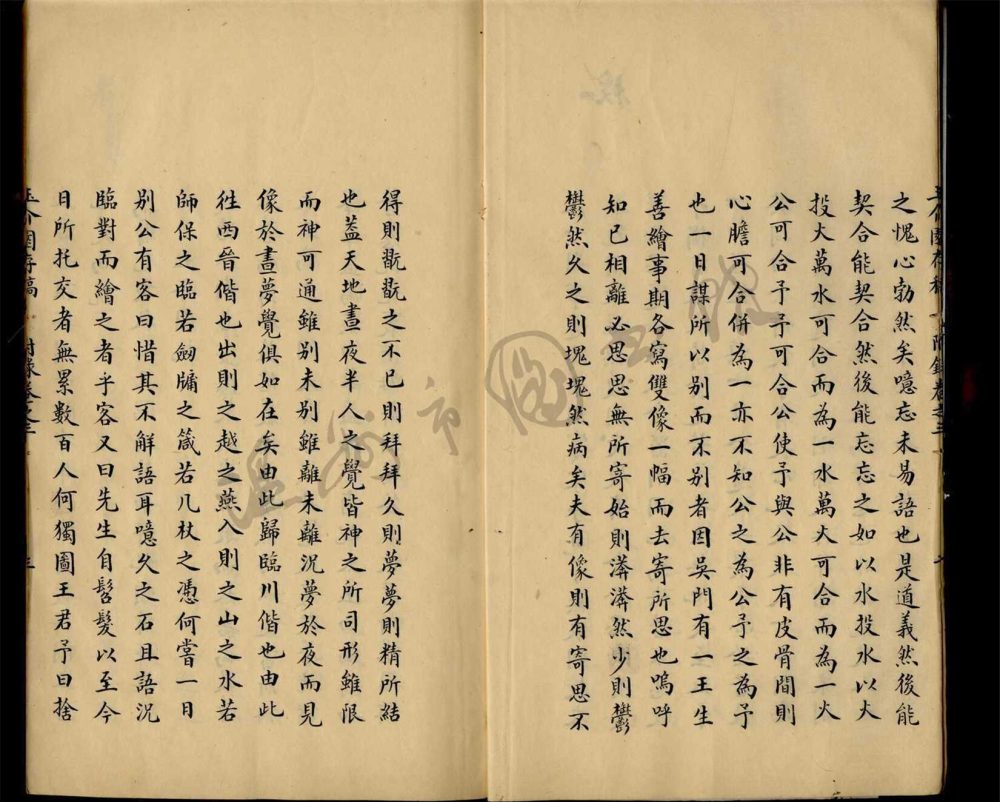 之愧心勃然矣噫忘未易語也是道義然後能
契合能契合然後能忘忘之如以水投水以火
投火萬水可合而為一水萬火可合而為一火
公可合予予可合公使予與公非有皮骨間則
心膽可合併為一亦不知公之為公予之為予
也一日謀所以別而不別者因吳門有一王生
善繪事期各寫雙像一幅而去寄所思也嗚呼
知己相離必思思無所寄始則漭漭然少則鬱
鬱然久之則塊塊然病矣夫有像則有寄思不
得則翫翫之不已則拜拜久則夢夢則精所結
也蓋天地晝夜半人之覺皆神之所司形雖限
而神可通雖別未別雖離未離況夢於夜而見
像於晝夢覺俱如在矣由此歸臨川偕也由此
徃西晉偕也出則之越之燕入則之山之水若
師保之臨若劒牖之箴若几杖之憑何嘗一日
別公有客曰惜其不解語耳噫久之石且語況
臨對而繪之者乎客又曰先生自髫髮以至今
日所托交者無累數百人何獨圖王君予曰捨
玉介園存稿 附錄卷之三